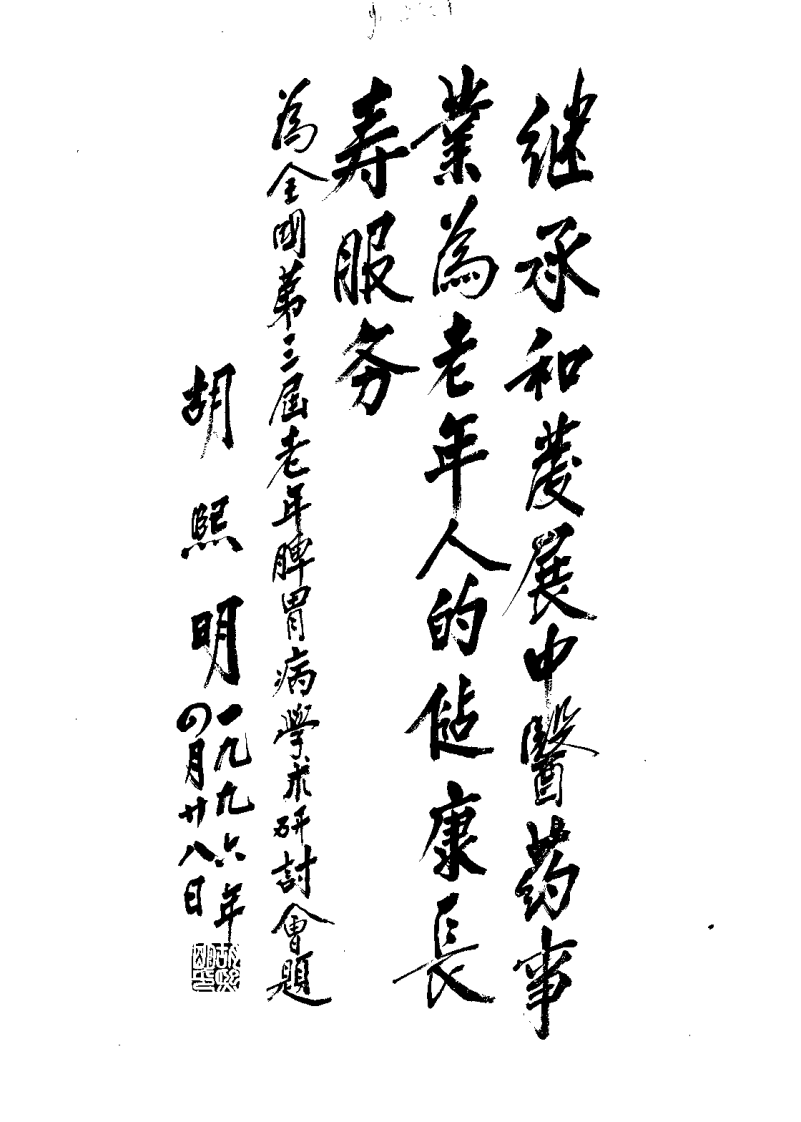 继承和發展中醫药事
業為老年人的健康長
寿服务
為全國第三屆老年脾胃病学术研討會題
胡熙明
一九九六年
四月廿八日